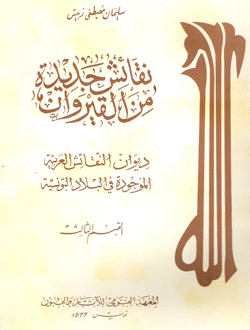 سليمان مصطفى زبيس
نقائش جديدة
من القيروان
ديوان النقائش العربية
الموجودة في البلاد التونسية
القسم الثالث
المعهد القومي للآثار والفنون
تونس 1977
الله